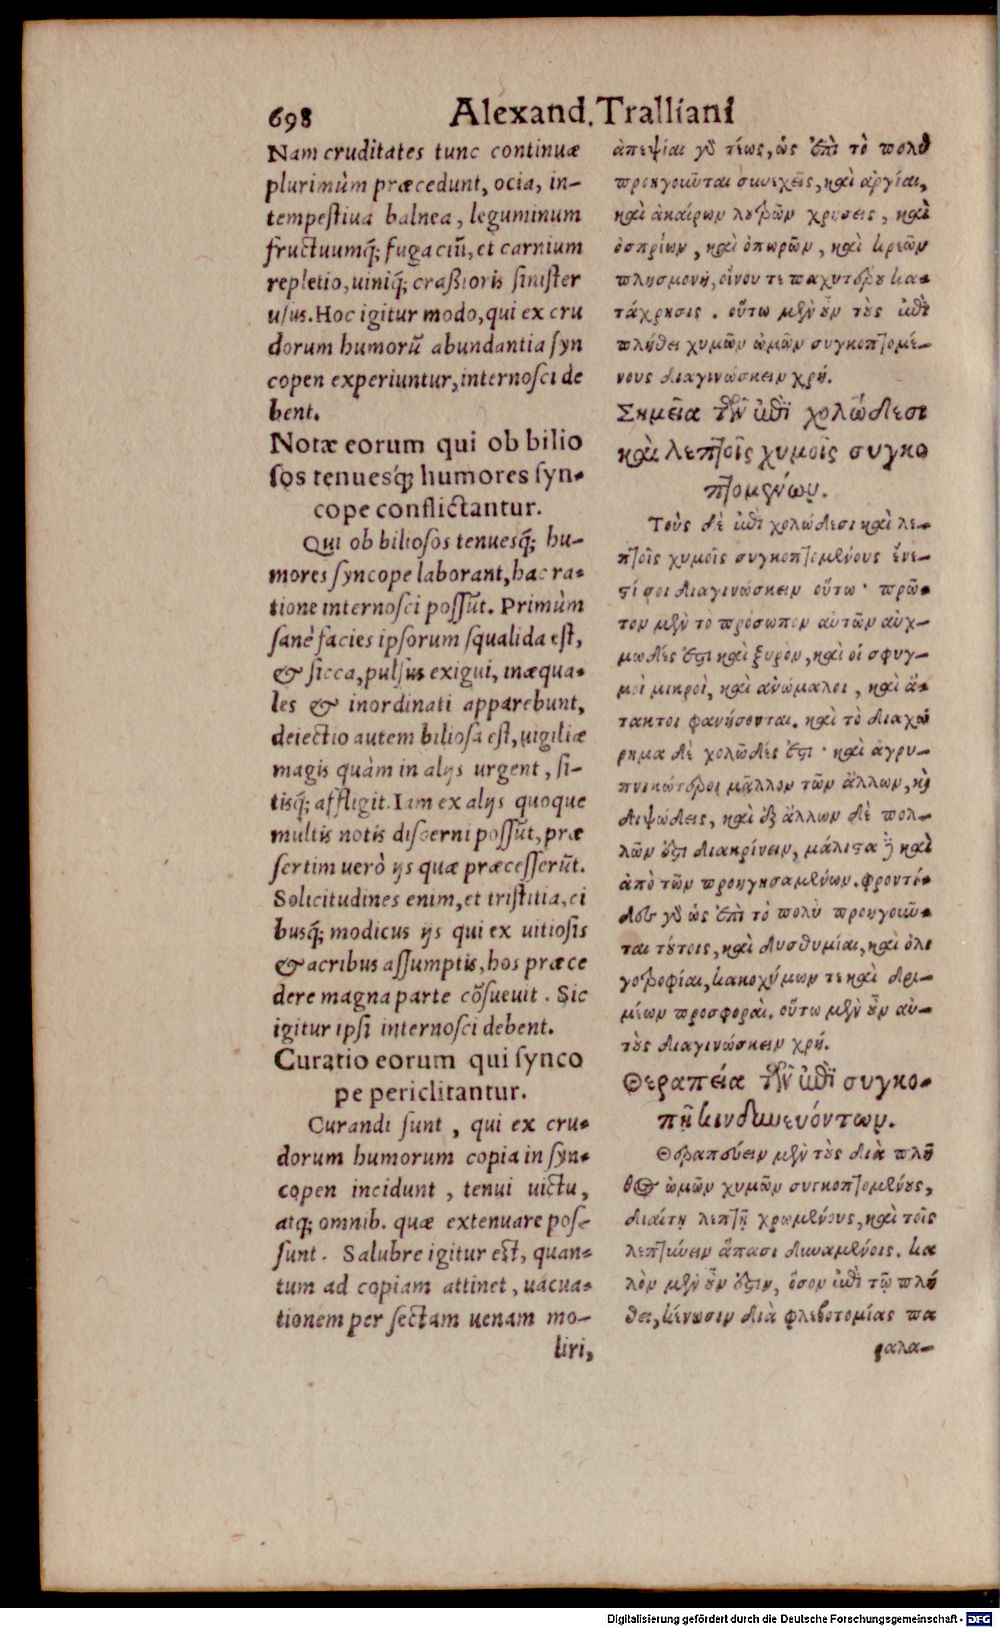 698 Alexand. Tralliani
Nam cruditates tunc continuæ
plurimùm præcedunt, ocia, in-
tempestiua balnea, leguminum
fructuumq́; fugaciū, et carnium
repletio, uiniq́; craßioris sinister
usus. Hoc igitur modo, qui ex cru
dorum humorū abundantia syn
copen experiuntur, internosci de
bent.
Notæ eorum qui ob bilio
sos tenuesq́; humores syn-
cope conflictantur.
Qui ob biliosos tenuesq́; hu-
mores syncope laborant, hac ra-
tione internosci possūt. Primùm
sanè facies ipsorum squalida est,
& sicca, pulsus exigui, inæqua-
les & inordinati apparebunt,
deiectio autem biliosa est, uigiliæ
magis quàm in alijs urgent, si-
tisq́; affligit. Iam ex alijs quoque
multis notis discerni possūt, præ
sertim uerò ijs quæ præcesserūt.
Solicitudines enim, et tristitia, ci
busq́; modicus ijs qui ex uitiosis
& acribus assumptis, hos præce
dere magna parte cōsueuit. Sic
igitur ipsi internosci debent.
Curatio eorum qui synco
pe periclitantur.
Curandi sunt, qui ex cru-
dorum humorum copia in syn-
copen incidunt, tenui uictu,
atq; omnib. quæ extenuare pos-
sunt. Salubre igitur est, quan-
tum ad copiam attinet, uacua-
tionem per sectam uenam mo-
liri,
ἀπεψίαι γὸ τέως, ὡς ἐπὶ τὸ πολὺ
προηγοῦνται συνεχεῖς, καὶ ἀργίαι,
καὶ ἀκαίρων λουτρῶν χρήσεις, καὶ
ὀσπρίων, καὶ ὀπωρῶν, καὶ κρεῶν
πλησμονή, οἴνου τε παχυτέρου κα-
τάχρησις. οὕτω μὲν οὖν τοὺς ἐπὶ
πλήθει χυμῶν ὠμῶν συγκοπτομέ-
νους διαγινώσκειν χρή.
Σημεῖα τῶν ἐπὶ χολώδεσι
καὶ λεπτοῖς χυμοῖς συγκο
πτομένων.
Τοὺς δὲ ἐπὶ χολώδεσι καὶ λε-
πτοῖς χυμοῖς συγκοπτομένους ἔνε-
στί σοι διαγινώσκειν οὕτω· πρῶ-
τον μὲν τὸ πρόσωπον αὐτῶν αὐχ-
μωδές ἐστι καὶ ξυρὸν, καὶ οἱ σφυγ-
μοὶ μικροὶ, καὶ ἀνώμαλοι, καὶ ἄ-
τακτοι φανήσονται. καὶ τὸ διαχώ
ρημα δὲ χολῶδές ἐστι· καὶ ἀγρυ-
πνικώτεροι μᾶλλον τῶν ἄλλων, καὶ
διψώδεις, καὶ ἐξ ἄλλων δὲ πολ-
λῶν ἔστι διακρίνειν, μάλιστα δὲ καὶ
ἀπὸ τῶν προηγησαμένων. φροντί-
δες γὸ ὡς ἐπὶ τὸ πολὺ προηγοῦν-
ται τούτοις, καὶ δυσθυμίαι, καὶ ὀλι
γοτροφίαι, κακοχύμων τε καὶ δρι-
μέων προσφοραὶ. οὕτω μὲν οὖν αὐ-
τοὺς διαγινώσκειν χρή.
Θεραπεία τῶν ἐπὶ συγκο-
πῇ κινδυνευόντων.
Θεραπεύειν μὲν τοὺς διὰ πλῆ
θος ὠμῶν χυμῶν συγκοπτομένους,
διαίτῃ λεπτῇ χρωμένους, καὶ τοῖς
λεπτύνειν ἅπασι δυναμένοις. κα
λὸν μὲν οὖν ἔστιν, ὅσον ἐπὶ τῷ πλή
θει, κένωσιν διὰ φλεβοτομίας πα
ραλα-
Digitalisierung gefördert durch die Deutsche Forschungsgemeinschaft - DFG